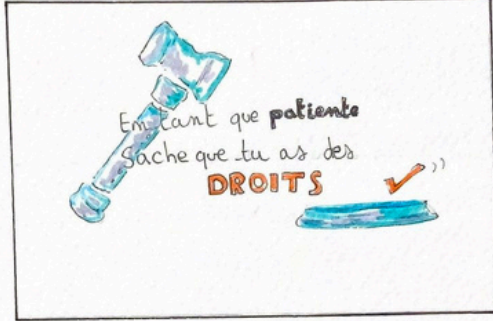 En tant que patiente
Sache que tu as des
DROITS